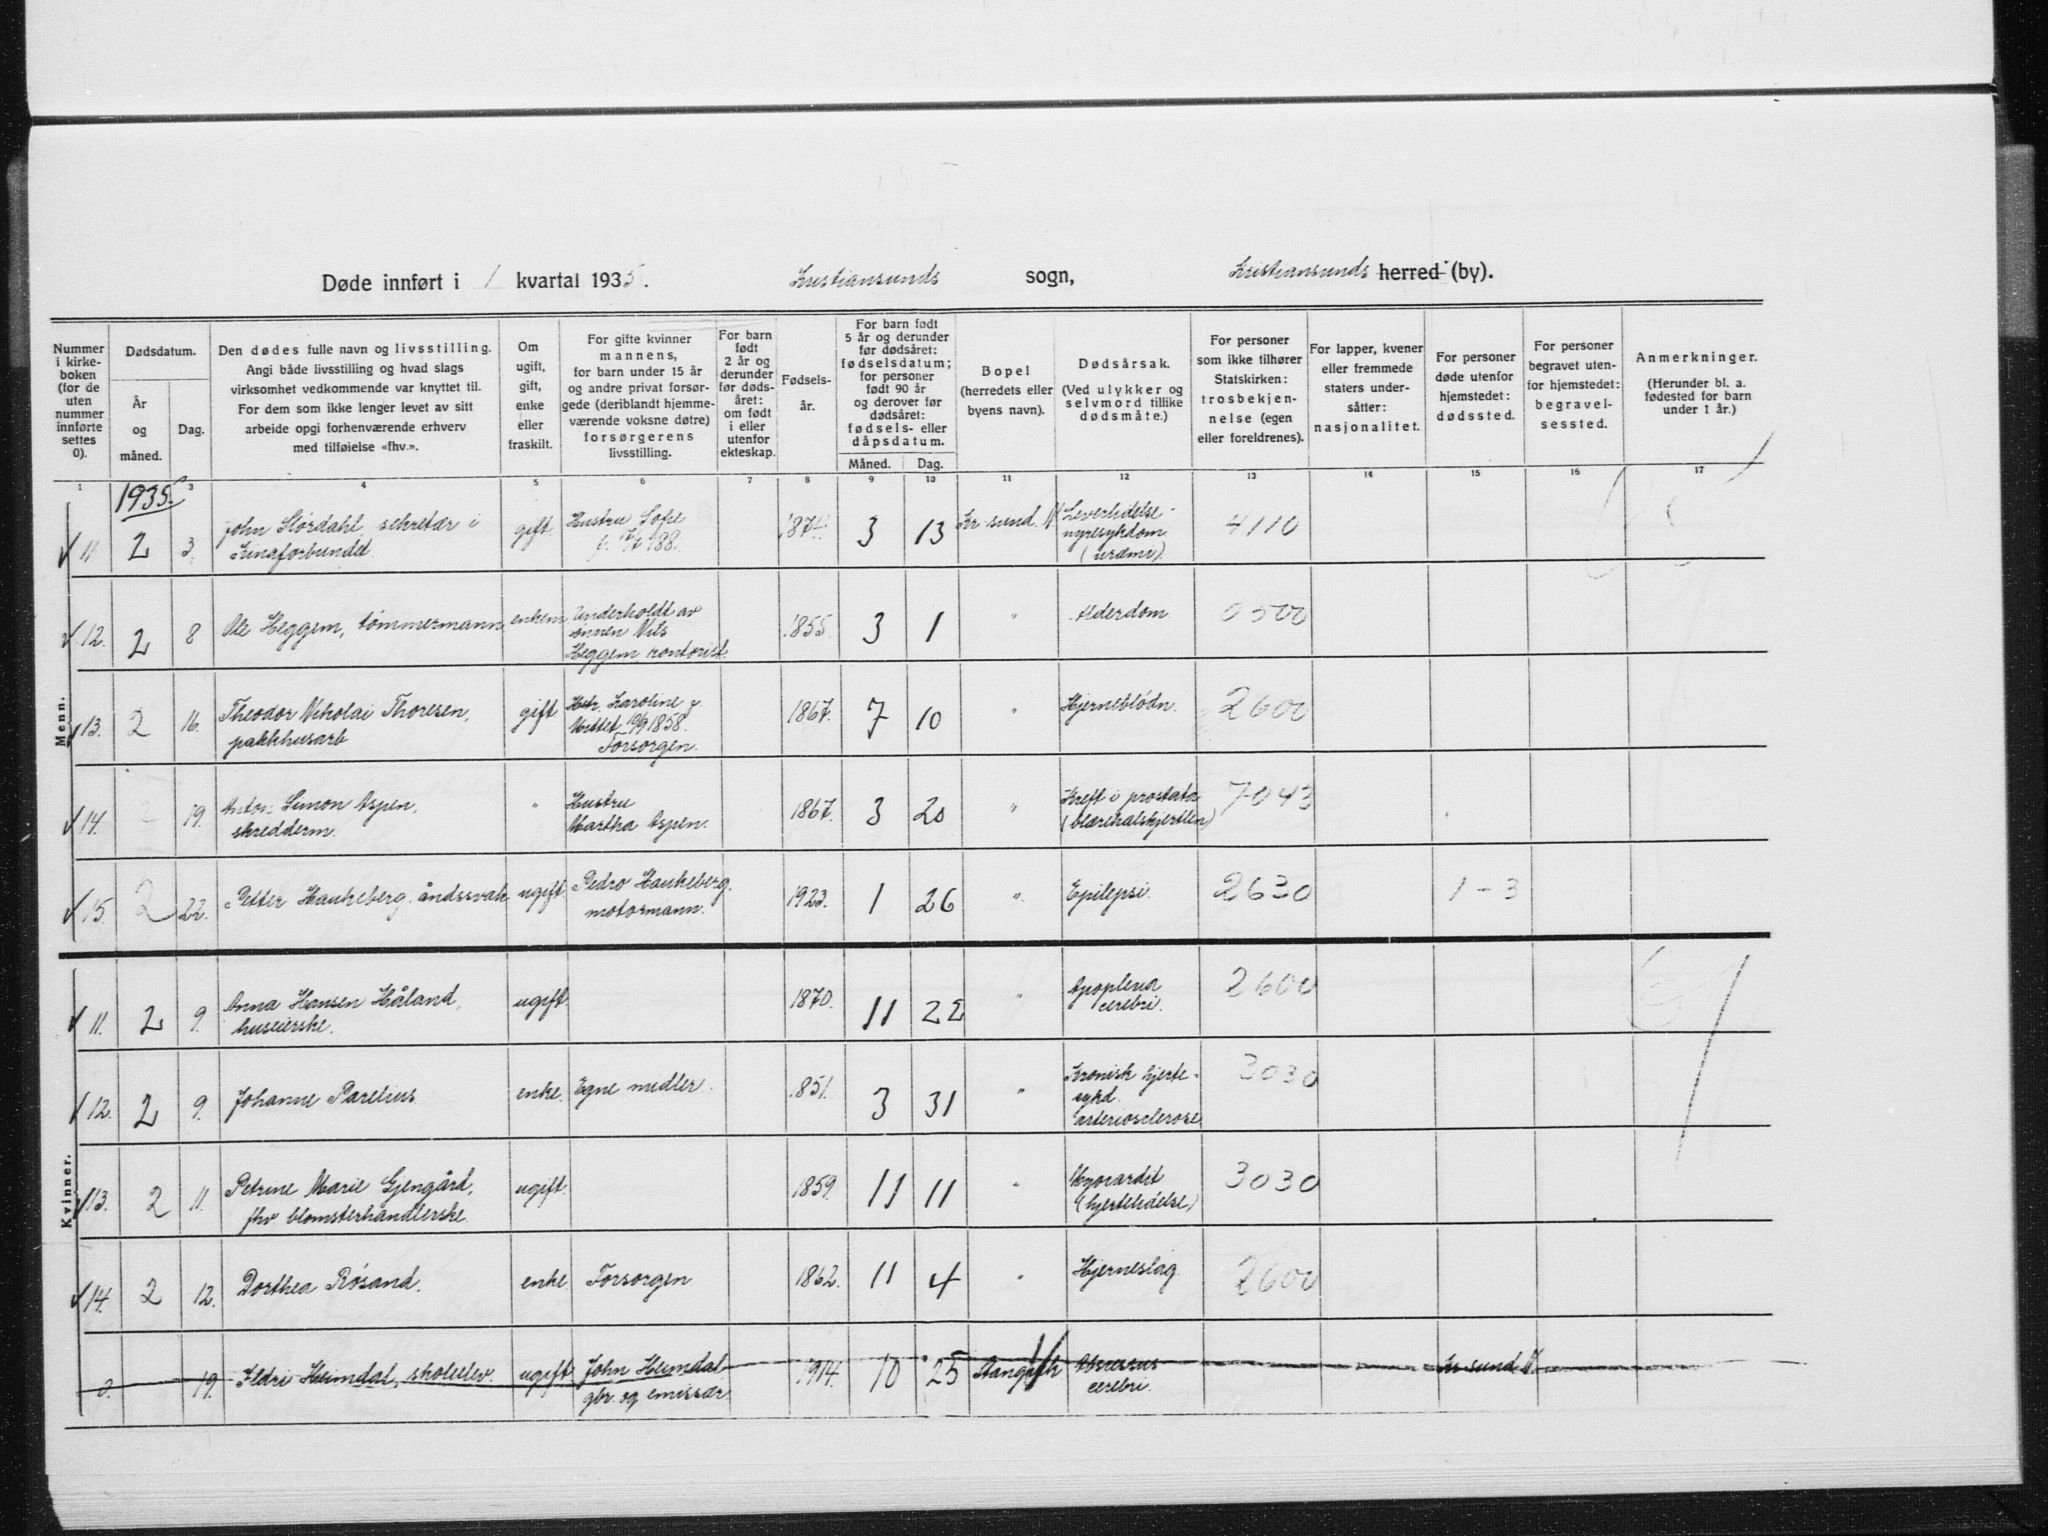 Døde innført i 1 kvartal 1935. Kristiansunds sogn, Kristiansunds herred (by).
Nummer i kirkeboken (for de uten nummer innførte settes 0).
Dødsdatum.
År og måned.
Dag.
Den dødes fulle navn og livsstilling.
Angi både livsstilling og hvad slags virksomhet vedkommende var knyttet til.
For dem som ikke lenger levet av sitt arbeide opgi forhenværende erhverv med tilføielse «fhv.».
Om ugift, gift, enke eller fraskilt.
For gifte kvinner mannens, for barn under 15 år og andre privat forsørgede (deriblandt hjemmeværende voksne døtre) forsørgerens livsstilling.
For barn født 2 år og derunder før dødsåret: om født i eller utenfor ekteskap.
Fødselsår.
For barn født 5 år og derunder før dødsåret: fødselsdatum; for personer født 90 år og derover før dødsåret: fødsels- eller dåpsdatum.
Måned. Dag.
Bopel (herredets eller byens navn).
Dødsårsak. (Ved ulykker og selvmord tillike dødsmåte.)
For personer som ikke tilhører Statskirken: trosbekjennelse (egen eller foreldrenes).
For lapper, kvener eller fremmede staters undersåtter: nasjonalitet.
For personer døde utenfor hjemstedet: dødssted.
For personer begravet utenfor hjemstedet: begravelsessted.
Anmerkninger. (Herunder bl. a. fødested for barn under 1 år.)
1 3 4 5 6 7 8 9 10 11 12 13 14 15 16 17
1935
Menn.
11 2 3. John Størdahl, sekretær i gift. Hustru Sofie 187 3 13 Kr sund. N Leverlidelse - nyresykdom (uræmi). 4110
12. 2 8 Ole Heggem, tømmermann, enkem. Underholdt av sønnen Nils Heggem kontorist. 1855. 3 1 " Alderdom. 0500
13. 2 16. Theodor Nikolai Thoresen, pakkhusarb gift Hstr. Karoline f. 10/9 1858. Forsorgen. 1867. 7 10 " Hjerneblødn. 2600
14. 2 19. Anton Simon Aspen, skredderm. " Hustru Martha Aspen. 1867. 3 20 " Kreft i prostata (blærehalskjertlen) 7043
15. 2 22. Petter Haukeberg, åndssvak ugift. Pedro Haukeberg. motormann. 1923. 1 26 " Epilepsi. 2630 1-3
Kvinner.
11. 2 9. Anna Hansen Håland, huseierske. ugift. 1870. 11 22 " Apoplexia cerebri. 2600
12. 2 9. Johanne Parelius. enke. Egne midler. 1851. 3 31 " Kronisk hjertesykd. arteriosclerose. 3030
13. 2 11. Petrine Marie Gjengård, fhv blomsterhandlerske. ugift. 1859. 11 11 " Myocardit (hjertelidelse) 3030
14. 2 12. Dorthea Røsand. enke. Forsorgen 1862. 11 4 " Hjerneslag 2600
0. 19. Ildri Heimdal, skoleelev. ugift John Heimdal gbr. og emissær. 1914. 10 25 Stangvik Abscessus cerebri. Kr sund N.